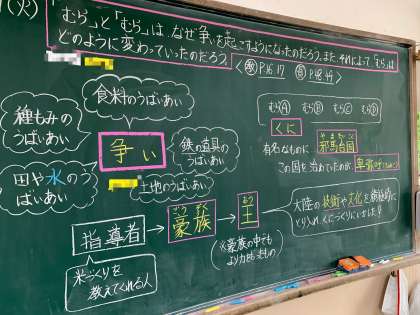 (火)
「むら」と「むら」は、なぜ争いを起こすようになったのだろう。また、それによって「むら」は
どのように変わっていったのだろう。
<教P.16.17 資P.48.49>
食料のうばいあい
種もみの
うばいあい
争い
鉄の道具の
うばいあい
田や水の
うばいあい
土地のうばいあい
むらA むらB むらC むらD
くに
有名なものに 邪馬台国
この国を治めていたのが、卑弥呼
指導者 → 豪族 → 王
ごうぞく
おう
米づくりを
教えてくれる人
(※豪族の中でも
より力をもつもの)
大陸の技術や文化を積極的に
とり入れ、くにづくりにいました!